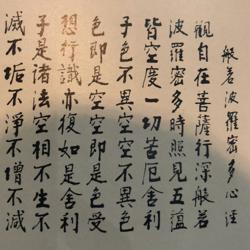 般若波羅密多心經
觀自在菩薩行深般若
波羅密多時照見五蘊
皆空度一切苦厄舍利
子色不異空空不異色
色即是空空即是色受
想行識亦復如是舍利
子是諸法空相不生不
滅不垢不淨不增不減